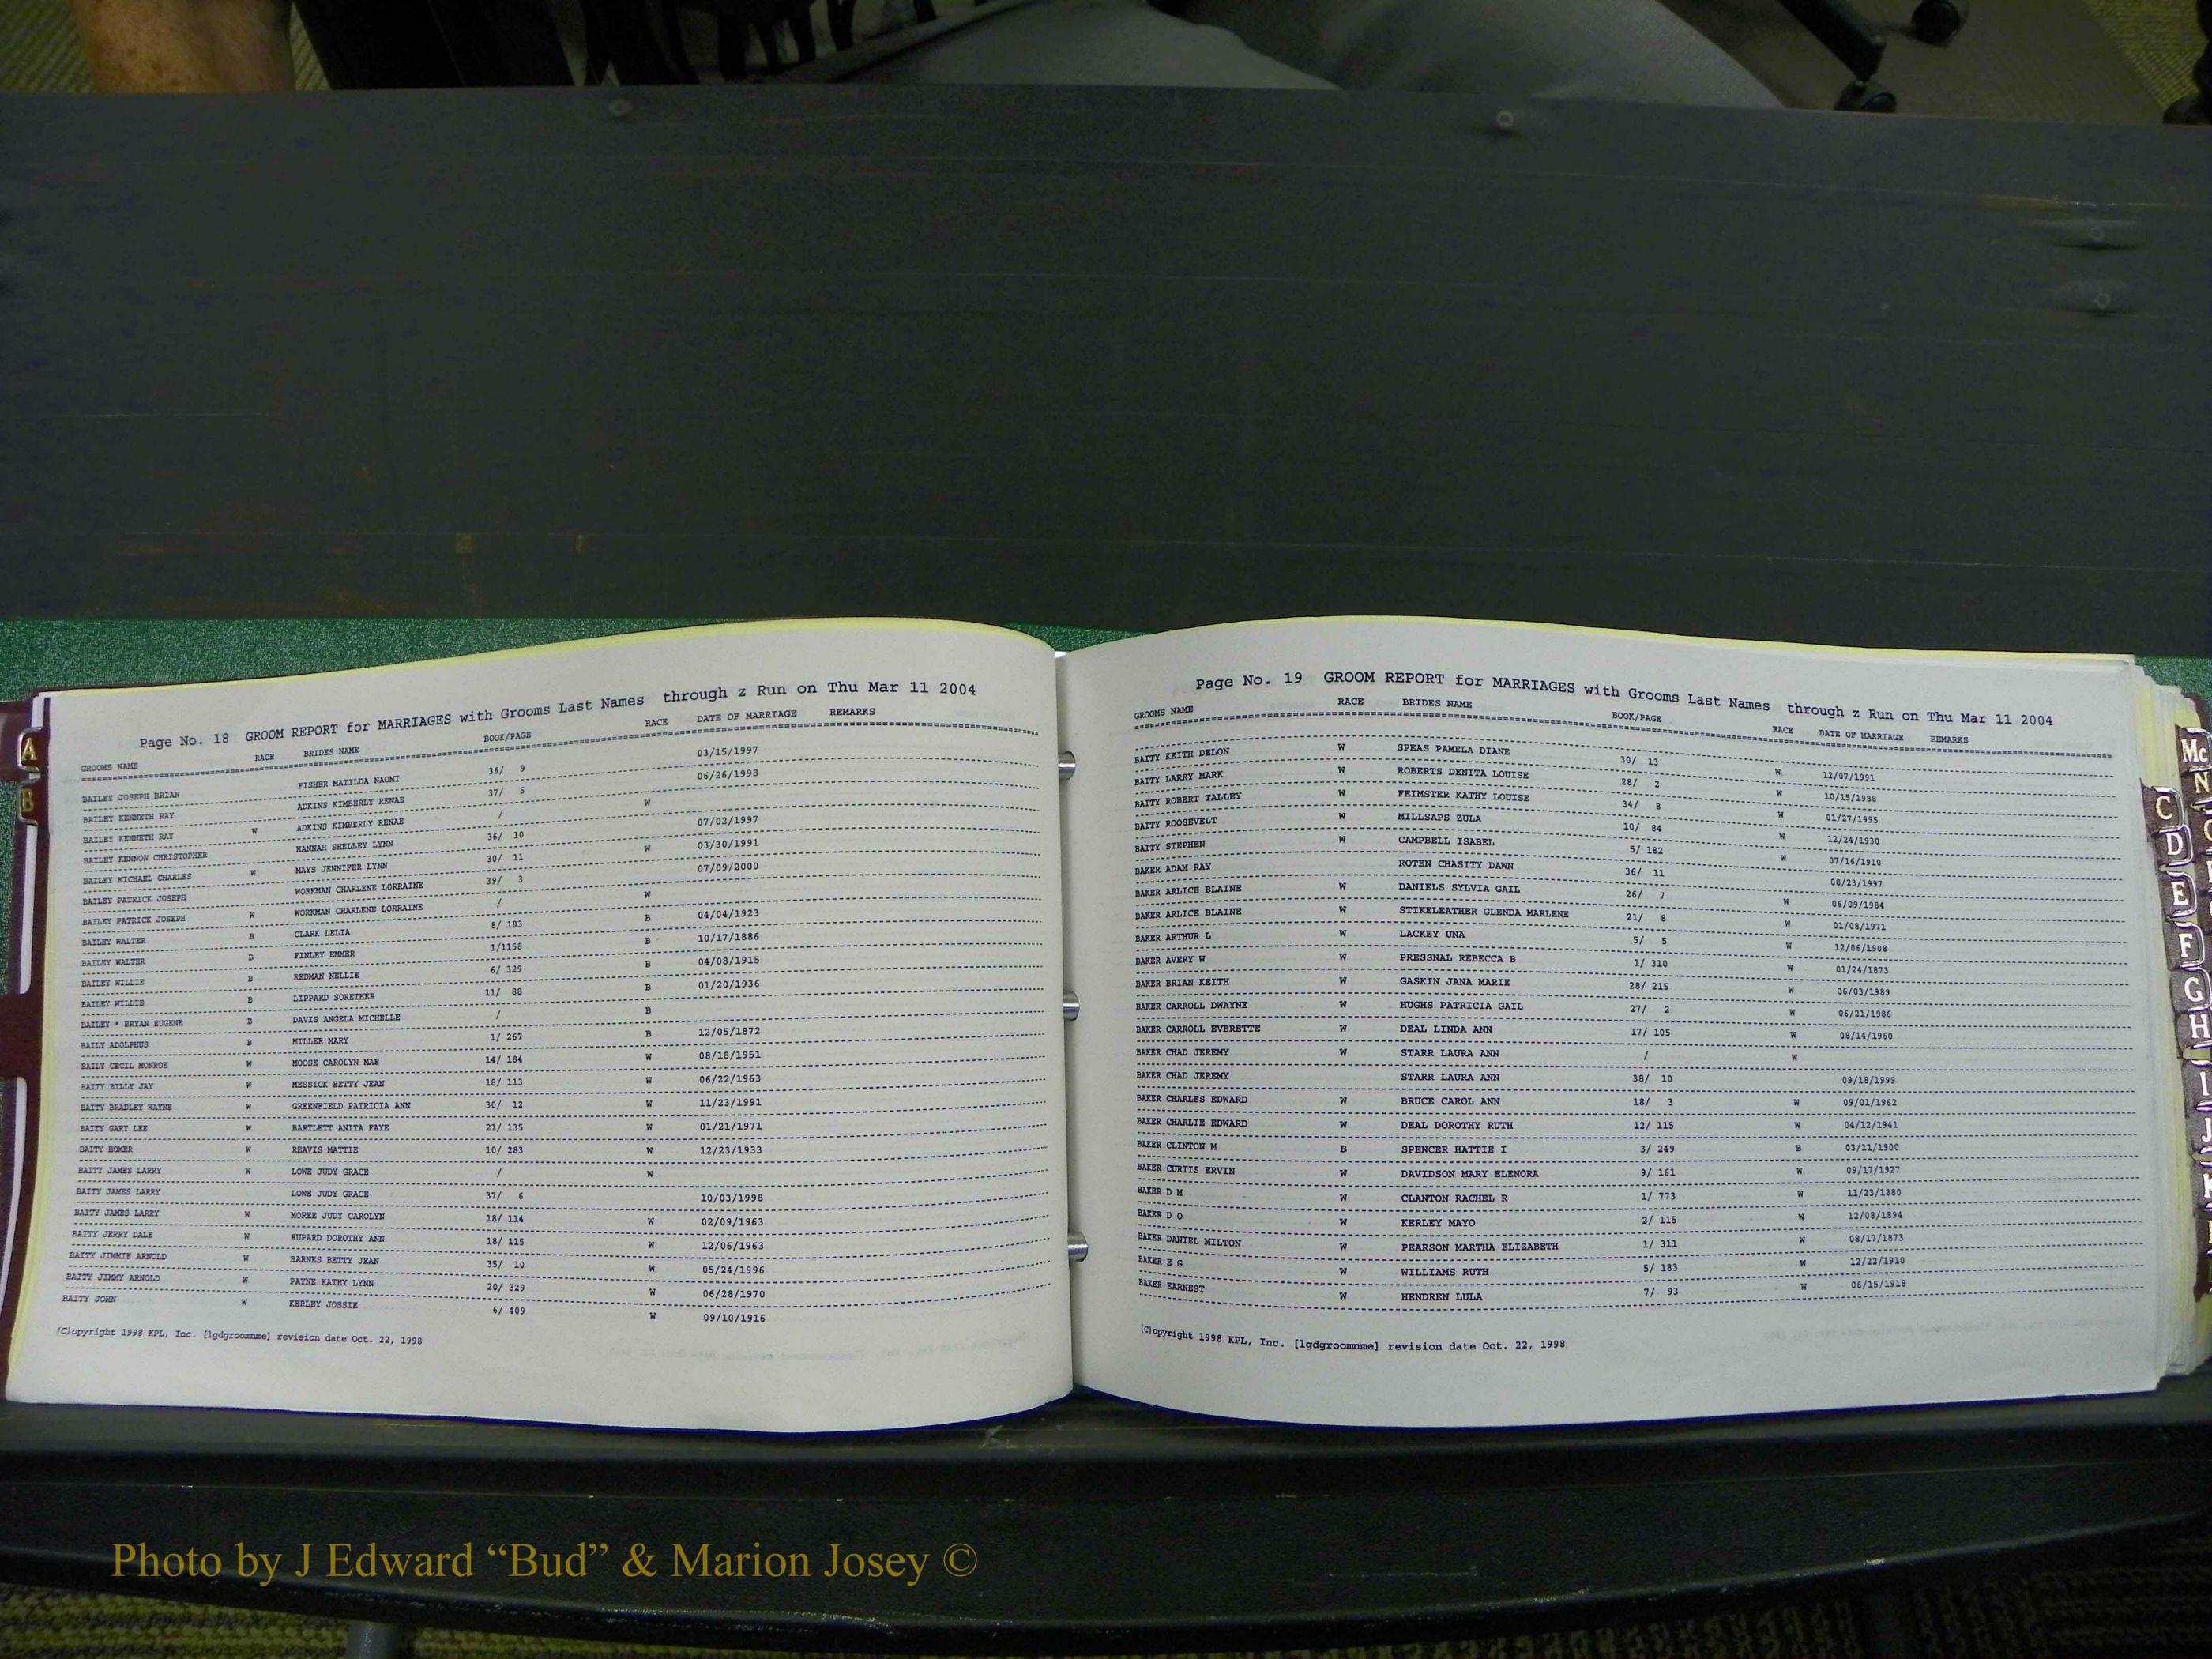 Page No. 18 GROOM REPORT for MARRIAGES with Grooms Last Names through z Run on Thu Mar 11 2004
GROOMS NAME RACE BRIDES NAME BOOK/PAGE RACE DATE OF MARRIAGE REMARKS
BAILEY JOSEPH BRIAN FISHER MATILDA NAOMI 36/ 9 03/15/1997
BAILEY KENNETH RAY ADKINS KIMBERLY RENAE 37/ 5 06/26/1998
BAILEY KENNETH RAY W ADKINS KIMBERLY RENAE / W
BAILEY KENNON CHRISTOPHER HANNAH SHELLEY LYNN 36/ 10 07/02/1997
BAILEY MICHAEL CHARLES W MAYS JENNIFER LYNN 30/ 11 W 03/30/1991
BAILEY PATRICK JOSEPH WORKMAN CHARLENE LORRAINE 39/ 3 07/09/2000
BAILEY PATRICK JOSEPH W WORKMAN CHARLENE LORRAINE / W
BAILEY WALTER B CLARK LELIA 8/ 183 B 04/04/1923
BAILEY WALTER B FINLEY EMMER 1/1158 B 10/17/1886
BAILEY WILLIE B REDMAN NELLIE 6/ 329 B 04/08/1915
BAILEY WILLIE B LIPPARD SORETHER 11/ 88 B 01/20/1936
BAILEY * BRYAN EUGENE B DAVIS ANGELA MICHELLE / B
BAILY ADOLPHUS B MILLER MARY 1/ 267 B 12/05/1872
BAILY CECIL MONROE W MOOSE CAROLYN MAE 14/ 184 W 08/18/1951
BAITY BILLY JAY W MESSICK BETTY JEAN 18/ 113 W 06/22/1963
BAITY BRADLEY WAYNE W GREENFIELD PATRICIA ANN 30/ 12 W 11/23/1991
BAITY GARY LEE W BARTLETT ANITA FAYE 21/ 135 W 01/21/1971
BAITY HOMER W REAVIS MATTIE 10/ 283 W 12/23/1933
BAITY JAMES LARRY W LOWE JUDY GRACE / W
BAITY JAMES LARRY LOWE JUDY GRACE 37/ 6 10/03/1998
BAITY JAMES LARRY W MOREE JUDY CAROLYN 18/ 114 W 02/09/1963
BAITY JERRY DALE W RUPARD DOROTHY ANN 18/ 115 W 12/06/1963
BAITY JIMMIE ARNOLD W BARNES BETTY JEAN 35/ 10 W 05/24/1996
BAITY JIMMY ARNOLD W PAYNE KATHY LYNN 20/ 329 W 06/28/1970
BAITY JOHN W KERLEY JOSSIE 6/ 409 W 09/10/1916
(C)opyright 1998 KPL, Inc. [lgdgroomnme] revision date Oct. 22, 1998
Page No. 19 GROOM REPORT for MARRIAGES with Grooms Last Names through z Run on Thu Mar 11 2004
GROOMS NAME RACE BRIDES NAME BOOK/PAGE RACE DATE OF MARRIAGE REMARKS
BAITY KEITH DELON W SPEAS PAMELA DIANE 30/ 13 W 12/07/1991
BAITY LARRY MARK W ROBERTS DENITA LOUISE 28/ 2 W 10/15/1988
BAITY ROBERT TALLEY W FEIMSTER KATHY LOUISE 34/ 8 W 01/27/1995
BAITY ROOSEVELT W MILLSAPS ZULA 10/ 84 W 12/24/1930
BAITY STEPHEN W CAMPBELL ISABEL 5/ 182 W 07/16/1910
BAKER ADAM RAY ROTEN CHASITY DAWN 36/ 11 08/23/1997
BAKER ARLICE BLAINE W DANIELS SYLVIA GAIL 26/ 7 W 06/09/1984
BAKER ARLICE BLAINE W STIKELEATHER GLENDA MARLENE 21/ 8 W 01/08/1971
BAKER ARTHUR L W LACKEY UNA 5/ 5 W 12/06/1908
BAKER AVERY W W PRESSNAL REBECCA B 1/ 310 W 01/24/1873
BAKER BRIAN KEITH W GASKIN JANA MARIE 28/ 215 W 06/03/1989
BAKER CARROLL DWAYNE W HUGHS PATRICIA GAIL 27/ 2 W 06/21/1986
BAKER CARROLL EVERETTE W DEAL LINDA ANN 17/ 105 W 08/14/1960
BAKER CHAD JEREMY W STARR LAURA ANN / W
BAKER CHAD JEREMY STARR LAURA ANN 38/ 10 09/18/1999
BAKER CHARLES EDWARD W BRUCE CAROL ANN 18/ 3 W 09/01/1962
BAKER CHARLIE EDWARD W DEAL DOROTHY RUTH 12/ 115 W 04/12/1941
BAKER CLINTON M B SPENCER HATTIE I 3/ 249 B 03/11/1900
BAKER CURTIS ERVIN W DAVIDSON MARY ELENORA 9/ 161 W 09/17/1927
BAKER D M W CLANTON RACHEL R 1/ 773 W 11/23/1880
BAKER D O W KERLEY MAYO 2/ 115 W 12/08/1894
BAKER DANIEL MILTON W PEARSON MARTHA ELIZABETH 1/ 311 W 08/17/1873
BAKER E G W WILLIAMS RUTH 5/ 183 W 12/22/1910
BAKER EARNEST W HENDREN LULA 7/ 93 W 06/15/1918
(C)opyright 1998 KPL, Inc. [lgdgroomnme] revision date Oct. 22, 1998
A
B
C
D
E
F
G
H
I
J
K
Mc
N
Photo by J Edward “Bud” & Marion Josey ©